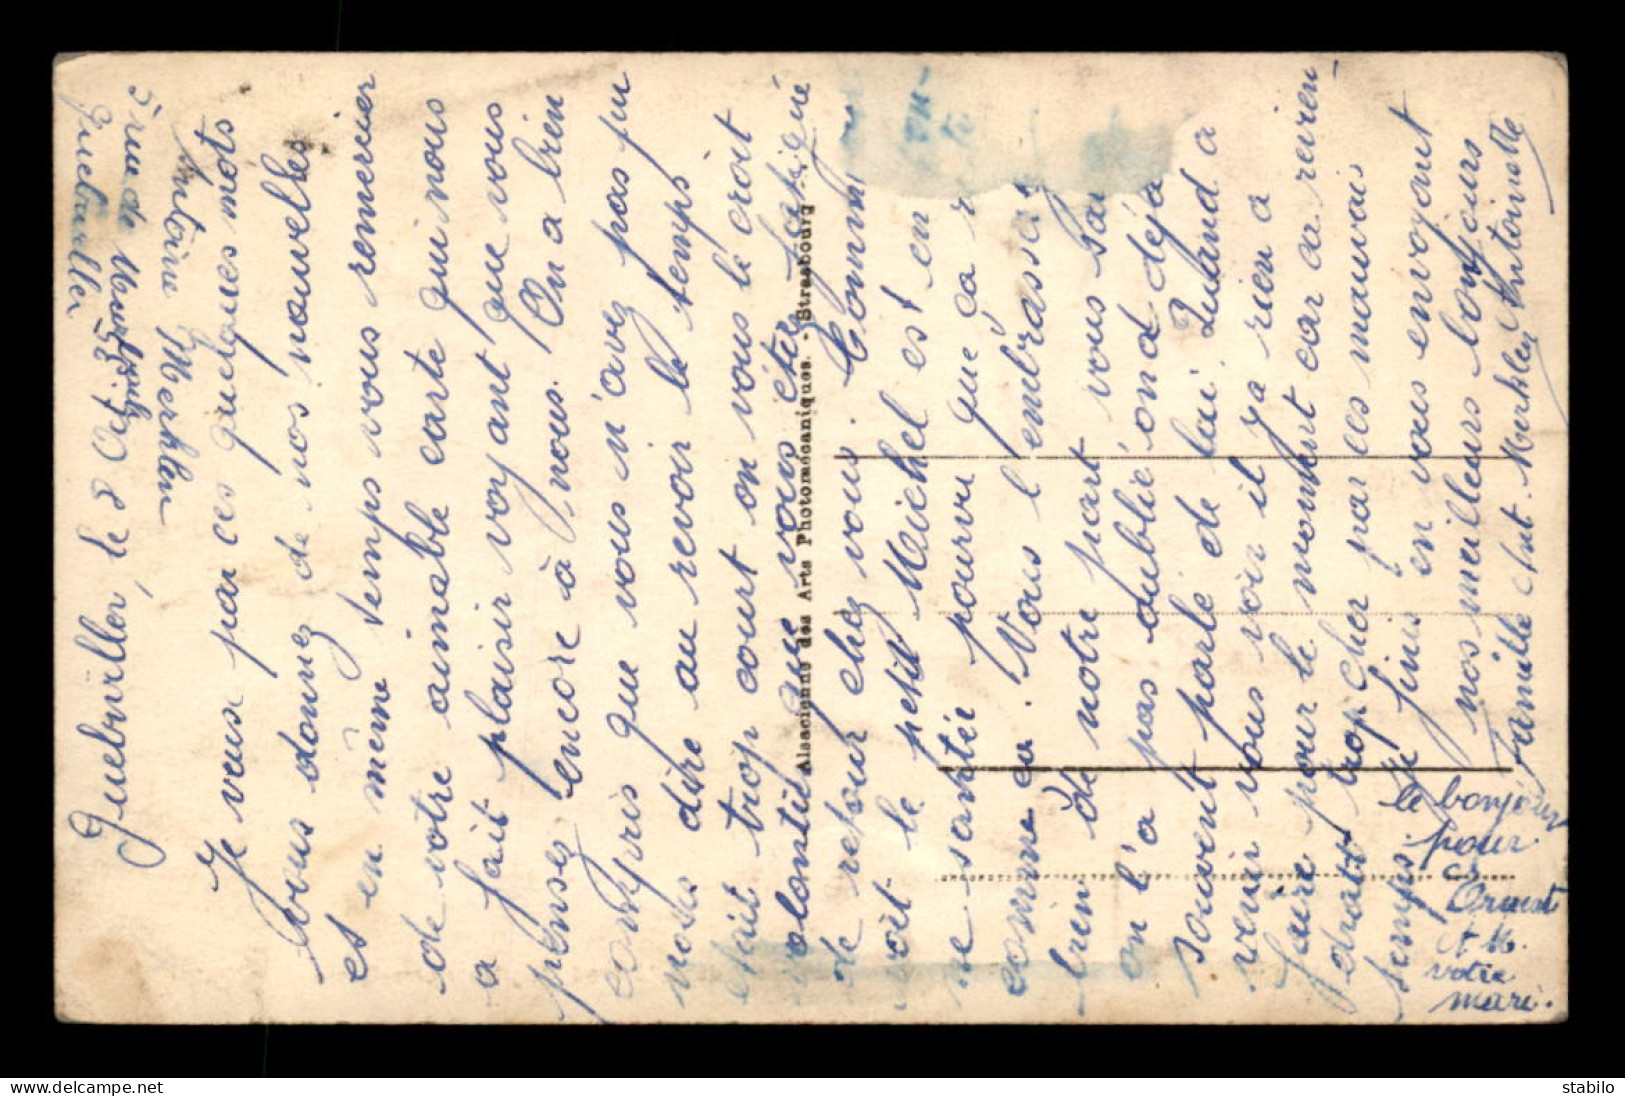 Guebwiller le 8 Oct.
Antoine Merklen
5 rue de
Guebwiller
Je veux par ces quelques mots
vous donnez de nos nouvelles
et en même temps vous remercier
de votre aimable carte qui nous
a fait plaisir voyant que vous
pensez encore à nous. On a bien
compris que vous n'avez pas pu
nous dire au revoir le temps
était trop court on vous le croit
volontiez que vous étiez fatigué
de retour chez vous. Comme
soit le petit Michel est en
ne santée pourvu que ça
comme ca. Vous l'embrassez
bien de notre part vous
on l'a pas oublié on a déjà
souvent parlé de lui. Quand a
venir vous voir il y a rien a
faire pour le moment car ca revien-
drait trop cher par ces mauvais
temps. Je finis en vous envoyant
nos meilleurs bonjours
Famille Ant. Merklen Antoinette
le bonjour
pour
et M.
votre
mari.
Alsacienne des Arts Photomécaniques. - Strasbourg
delcampe.net
stabilo